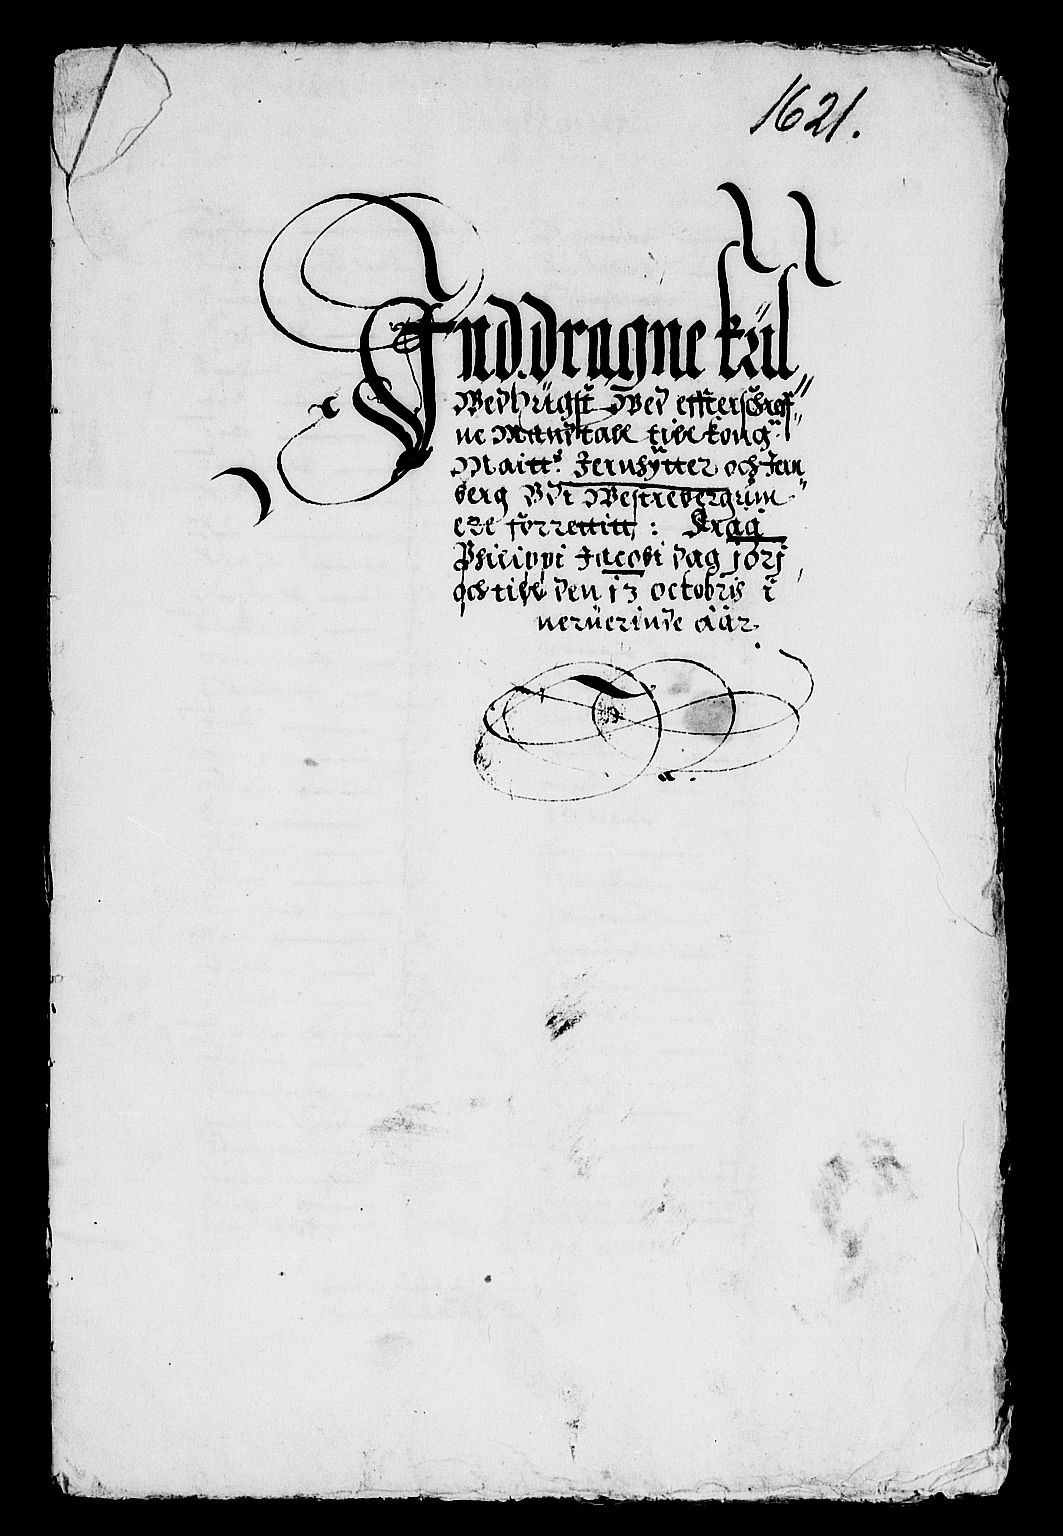 1621.
Ind.dragne kull
Wedhugst Wed effterschreff„
ne Manttall till kong:
Maitt:s Jernhÿtter och Jern
berg Vdi Westrebergum„
ere förrettitt: Frå
Philippi Jacobi dag 
och till den 13 octobris i
neruerinde åår.